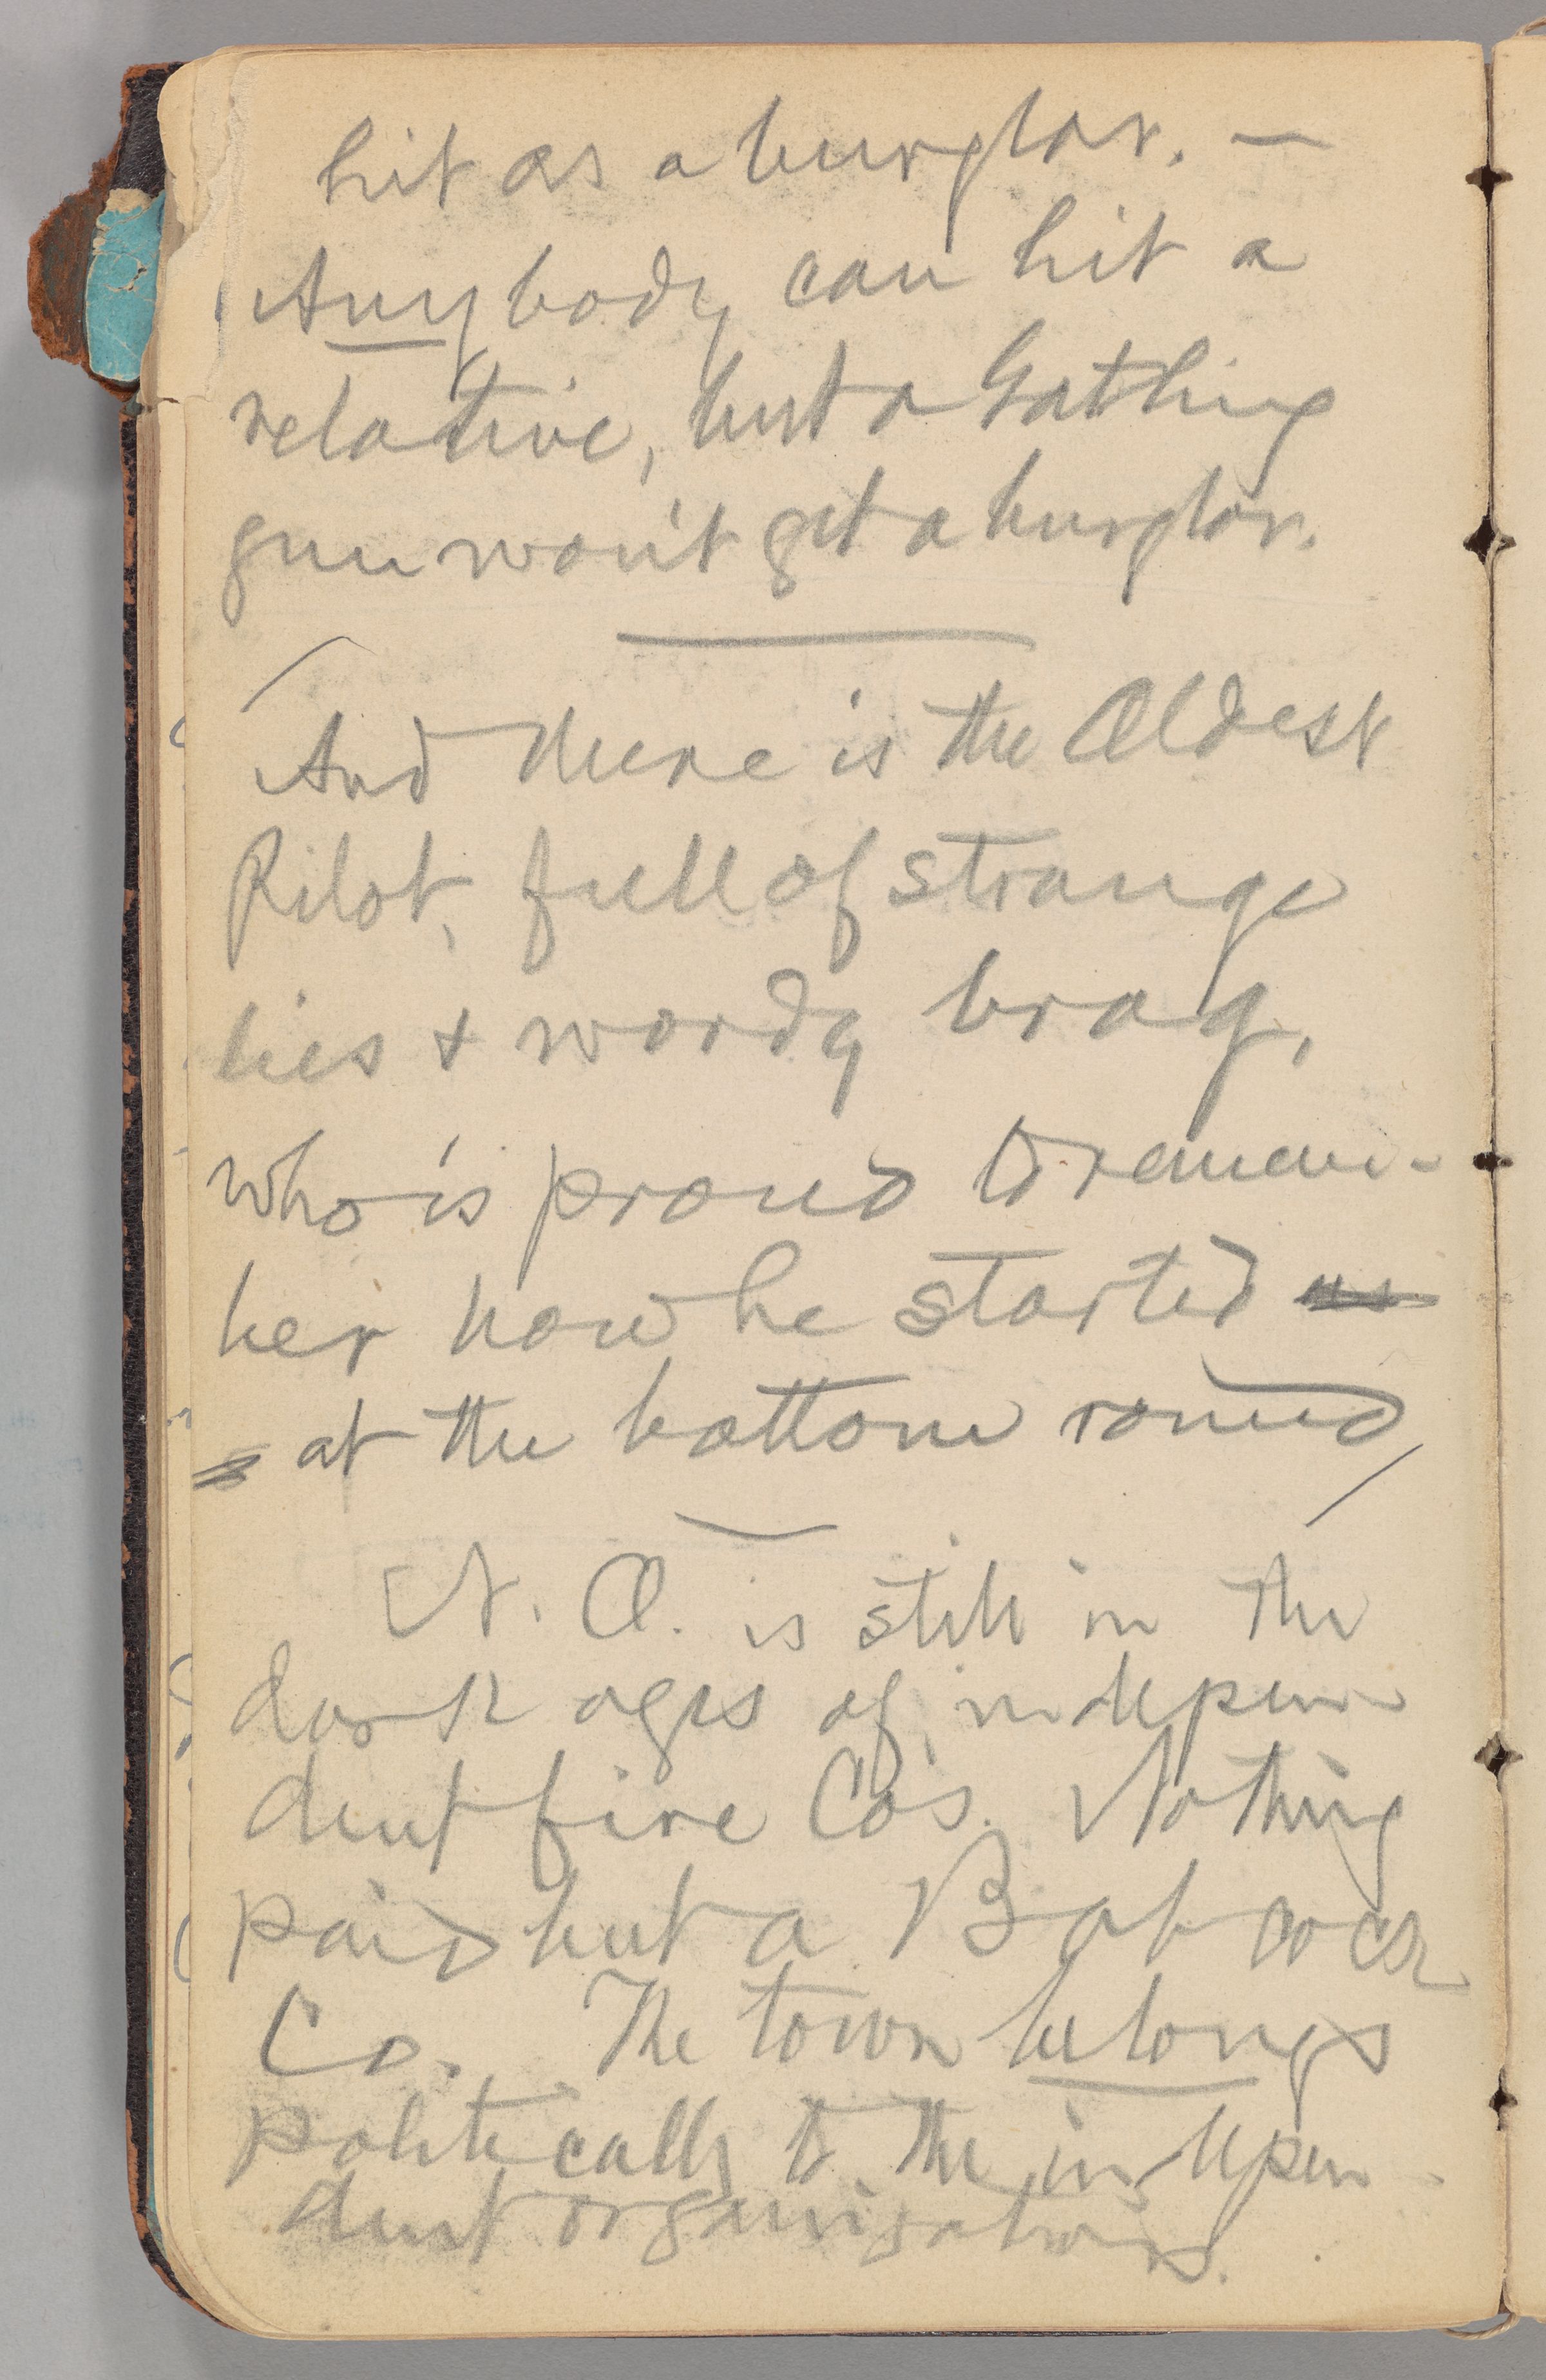 hit as a burglar. —
Anybody can hit a
relative, but a Gatling
gun won't get a burglar.
And there is the Oldest
Pilot, full of strange
lies & wordy brag,
who is proud to remem-
ber how he started
at the bottom round
N. O. is still in the
dark ages of indepen-
dent fire Co's. Nothing
paid but a Babcock
Co. The town belongs
politically to the indepen-
dent organizations.